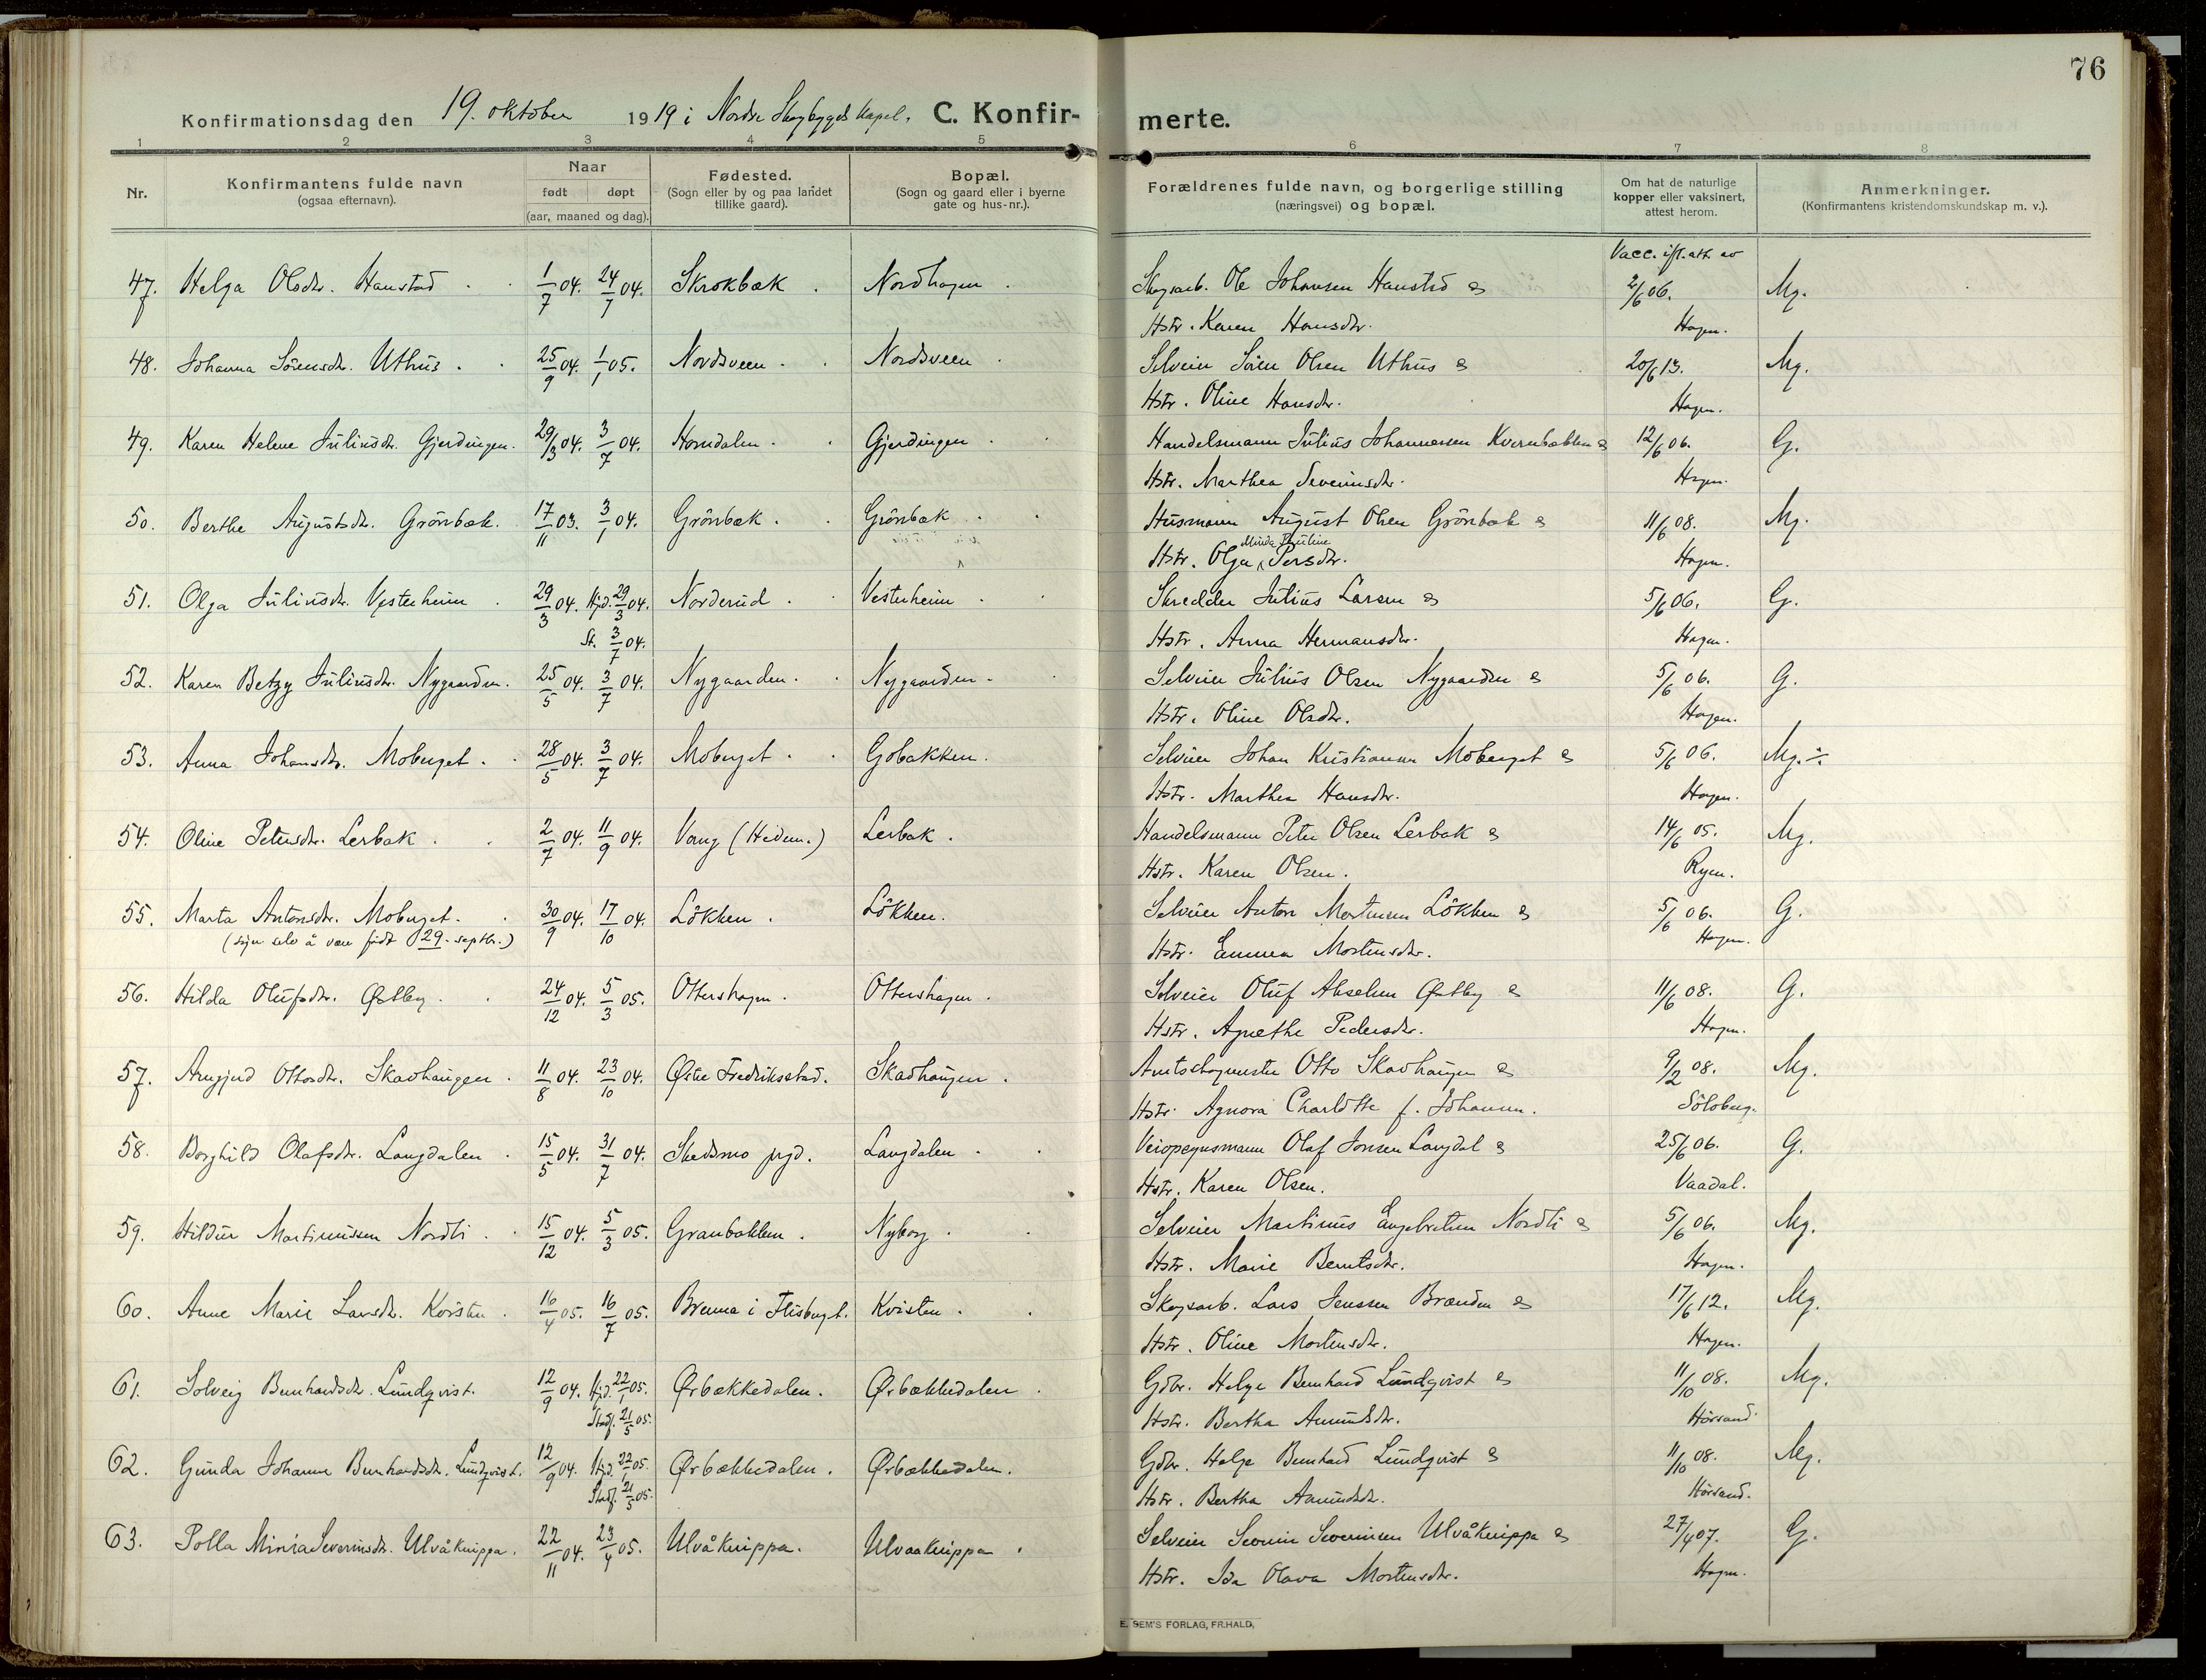 76
Konfirmationsdag den 19. oktober 1919 i Nordre Skogbygds Kapel. C. Konfir- merte.
1 2 3 4 5 6 7 8
Nr.
Konfirmantens fulde navn
(ogsaa efternavn).
Naar
født døpt
(aar, maaned og dag).
Fødested.
(Sogn eller by og paa landet
tillike gaard).
Bopæl.
(Sogn og gaard eller i byerne
gate og hus-nr.).
Forældrenes fulde navn, og borgerlige stilling
(næringsvei) og bopæl.
Om hat de naturlige
kopper eller vaksinert,
attest herom.
Anmerkninger.
(Konfirmantens kristendomskundskap m. v.).
Vacc. ifl. att. av
47. Helga Olsdtr. Hanstad 1/7 04. 24/7 04. Skrokbæk. Nordhagen. Skogsarb. Ole Johansen Hanstad & 2/6 06. Mg.
Hstr. Karen Hansdtr. Hagen.
48. Johanna Sörensdtr. Uthus. 25/9 04. 1/1 05. Nordsveen. Nordsveen. Selveier Sören Olsen Uthus & 20/6 13. Mg.
Hstr. Oline Hansdtr. Hagen.
49. Karen Helene Juliusdtr. Gjerdingen. 29/3 04. 3/7 04. Homdalen. Gjerdingen. Handelsmann Julius Johannesen Kvernbækken & 12/6 06. G.
Hstr. Marthea Severinsdtr. Hagen.
50. Berthe Augustsdtr. Grönbæk. 17/11 03. 3/1 04. Grönbæk. Grönbæk. Husmann August Olsen Grönbæk & 11/6 08. Mg.
Minda Pauline
Hstr. Olga Persdtr. Hagen.
51. Olga Juliusdtr. Vesterheim 29/3 04. Hjd. 29/3 04. Norderud. Vesterheim. Skredder Julius Larsen & 5/6 06. G.
St. 3/7 04. Hstr. Anna Hermansdtr. Hagen.
52. Karen Betzy Juliusdtr. Nygaarden. 25/5 04. 3/7 04. Nygaarden. Nygaarden. Selveier Julius Olsen Nygaarden & 5/6 06. G.
Hstr. Oline Olsdtr. Hagen.
53. Anna Johansdtr. Moberget. 28/5 04. 3/7 04. Moberget. Gobakken. Selveier Johan Kristiansen Moberget & 5/6 06. Mg. ÷
Hstr. Marthea Hansdtr. Hagen.
54. Oline Petersdtr. Lerbæk. 2/7 04. 11/9 04. Vang (Hedem.) Lerbæk. Handelsmann Peter Olsen Lerbæk & 14/6 05. Mg.
Hstr. Karen Olsen. Ryen.
55. Marta Antonsdtr. Moberget. 30/9 04. 17/10 04. Lökken. Lökken. Selveier Anton Mortensen Lökken & 5/6 06. G.
(sier selv å være født 29. septbr.) Hstr. Emma Mortensdtr. Hagen.
56. Hilda Olufsdtr. Østby. 24/12 04. 5/3 05. Ottershagen. Ottershagen. Selveier Oluf Abselsen Østby & 11/6 08. G.
Hstr. Agnethe Pedersdtr. Hagen.
57. Arngjerd Ottosdtr. Skavhaugen. 11/8 04. 23/10 04. Østre Fredriksstad. Skavhaugen. Amtsdagmester Otto Skavhaugen & 9/2 08. Mg.
Hstr. Agnora Charlotte f. Johansen. Solberg.
58. Borghild Olafsdtr. Langdalen 15/5 04. 31/7 04. Skedsmo prgd. Langdalen. Veiopsynsmann Olaf Jonsen Langdal & 25/6 06. G.
Hstr. Karen Olsen. Vaadal.
59. Hildur Martinussen Nordli. 15/12 04. 5/3 05. Granbakken. Nyborg. Selveier Martinus Engebretsen Nordli & 5/6 06. Mg.
Hstr. Marie Berntsdtr. Hagen.
60. Anne Marie Larsdtr. Kvisten. 16/4 05. 16/7 05. Brenna i Flisberget. Kvisten. Skogsarb. Lars Jenssen Brænden & 17/6 12. Mg.
Hstr. Oline Mortensdtr. Hagen.
61. Solveig Bernhardsdtr. Lundqvist. 12/9 04. Hjd. 22/1 05. Ørbækkedalen. Ørbækkedalen. Gdbr. Helge Bernhard Lundqvist & 11/10 08. Mg.
Stadf. 21/5 05. Hstr. Bertha Amundsdtr. Hörsand.
62. Gunda Johanne Bernhardsdtr. Lundqvist. 12/9 04. Hjd. 22/1 05. Ørbækkedalen. Ørbækkedalen. Gdbr. Helge Bernhard Lundqvist & 11/10 08. Mg.
Stadf. 21/5 05. Hstr. Bertha Amundsdtr. Hörsand.
63. Polla Minia Severinsdtr. Ulvåkneppa. 22/11 04. 23/4 05. Ulvåknippa. Ulvaaknippa. Selveier Severin Severinsen Ulvåknippa & 27/4 07. G.
Hstr. Ida Olava Mortensdtr. Hagen.
E. SEM'S FORLAG, FR.HALD,